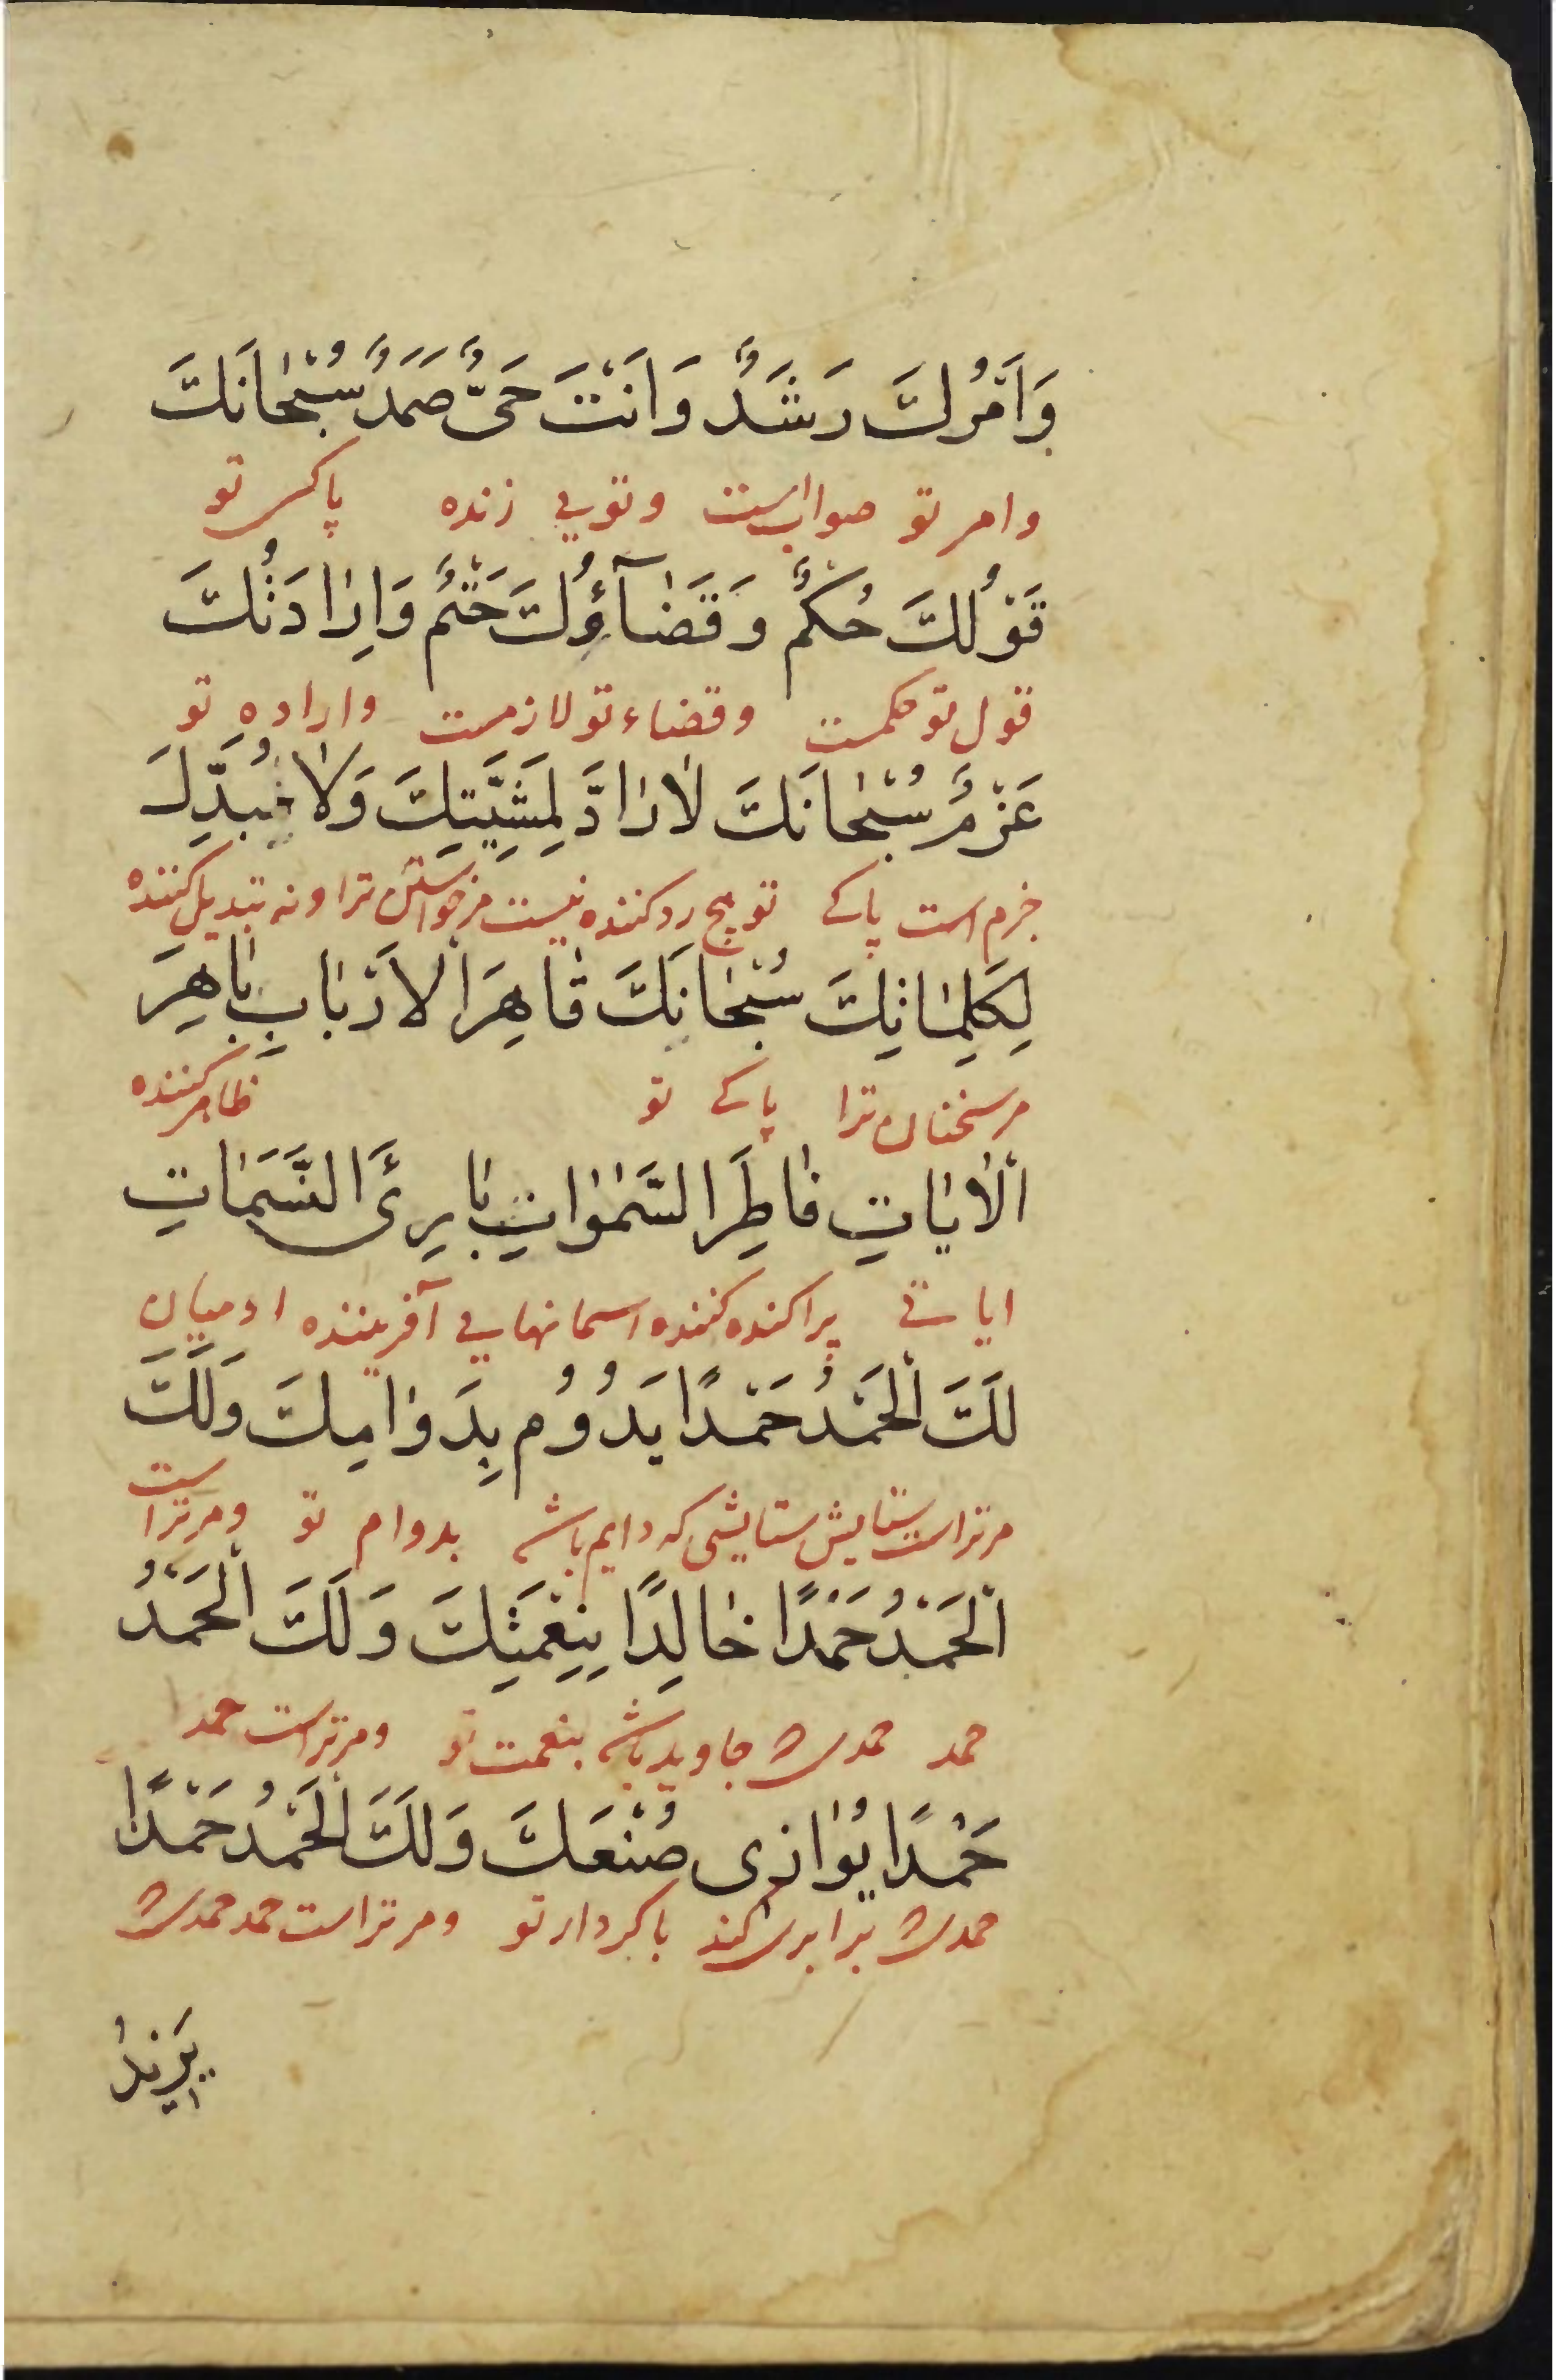 وَاَمْرُكَ رَشَدٌ وَاَنْتَ حَىٌّ صَمَدٌ سُبْحٰانَكَ
وامر تو صواب است وتویی زنده پاکی تو
قَوْلُكَ حُكْمٌ وَقَضٰآؤُكَ حَتْمٌ وَاِرٰادَتُكَ
قول تو حکمست وقضاء تو لازمست واراده تو
عَزْمٌ سُبْحٰانَكَ لٰا رٰادَّ لِمَشِيَّتِكَ وَلٰا مُبَدِّلَ
جزم است پاکی تو هیچ رد کننده نیست مر خواستن ترا ونه تبدیل کننده
لِكَلِمٰاتِكَ سُبْحٰانَكَ قٰاهِرَ الْاَرْبٰابِ بٰاهِرَ
مر سخنان ترا پاکی تو ظاهر کننده
الْاٰيٰاتِ فٰاطِرَ السَّمٰوٰاتِ بٰارِئَ النَّسَمٰاتِ
ایاتی پراکنده کننده اسمانهایی آفریننده ادمیان
لَكَ الْحَمْدُ حَمْدًا يَدُوُمُ بِدَوٰامِكَ وَلَكَ
مرتراست ستایش ستایشی که دایم باشد بدوام تو ومرتراست
الْحَمْدُ حَمْدًا خٰالِدًا بِنِعْمَتِكَ وَلَكَ الْحَمْدُ
حمد حمدی جاوید باشد بنعمت تو ومرتراست حمد
حَمْدًا يُوٰازى صُنْعَكَ وَلَكَ الْحَمْدُ حَمْدًا
حمدی برابری کند باکردار تو ومرتراست حمد حمدی
يَزيدُ